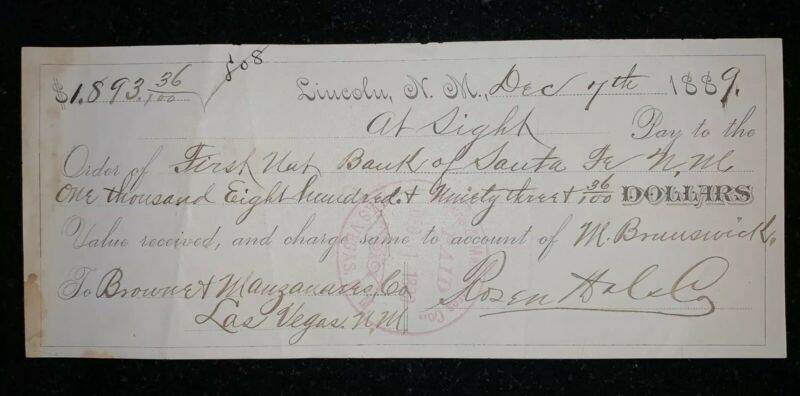 808
$1.893.36/100
Lincoln, N. M., Dec 7th 1889.
At Sight Pay to the
Order of First Nat Bank of Santa Fe N.M
One thousand Eight hundred & Ninety three & 36/100 DOLLARS
Value received, and charge same to account of M. Brunswick.
To Browne & Manzanares Co
Las Vegas. N.M
PAID